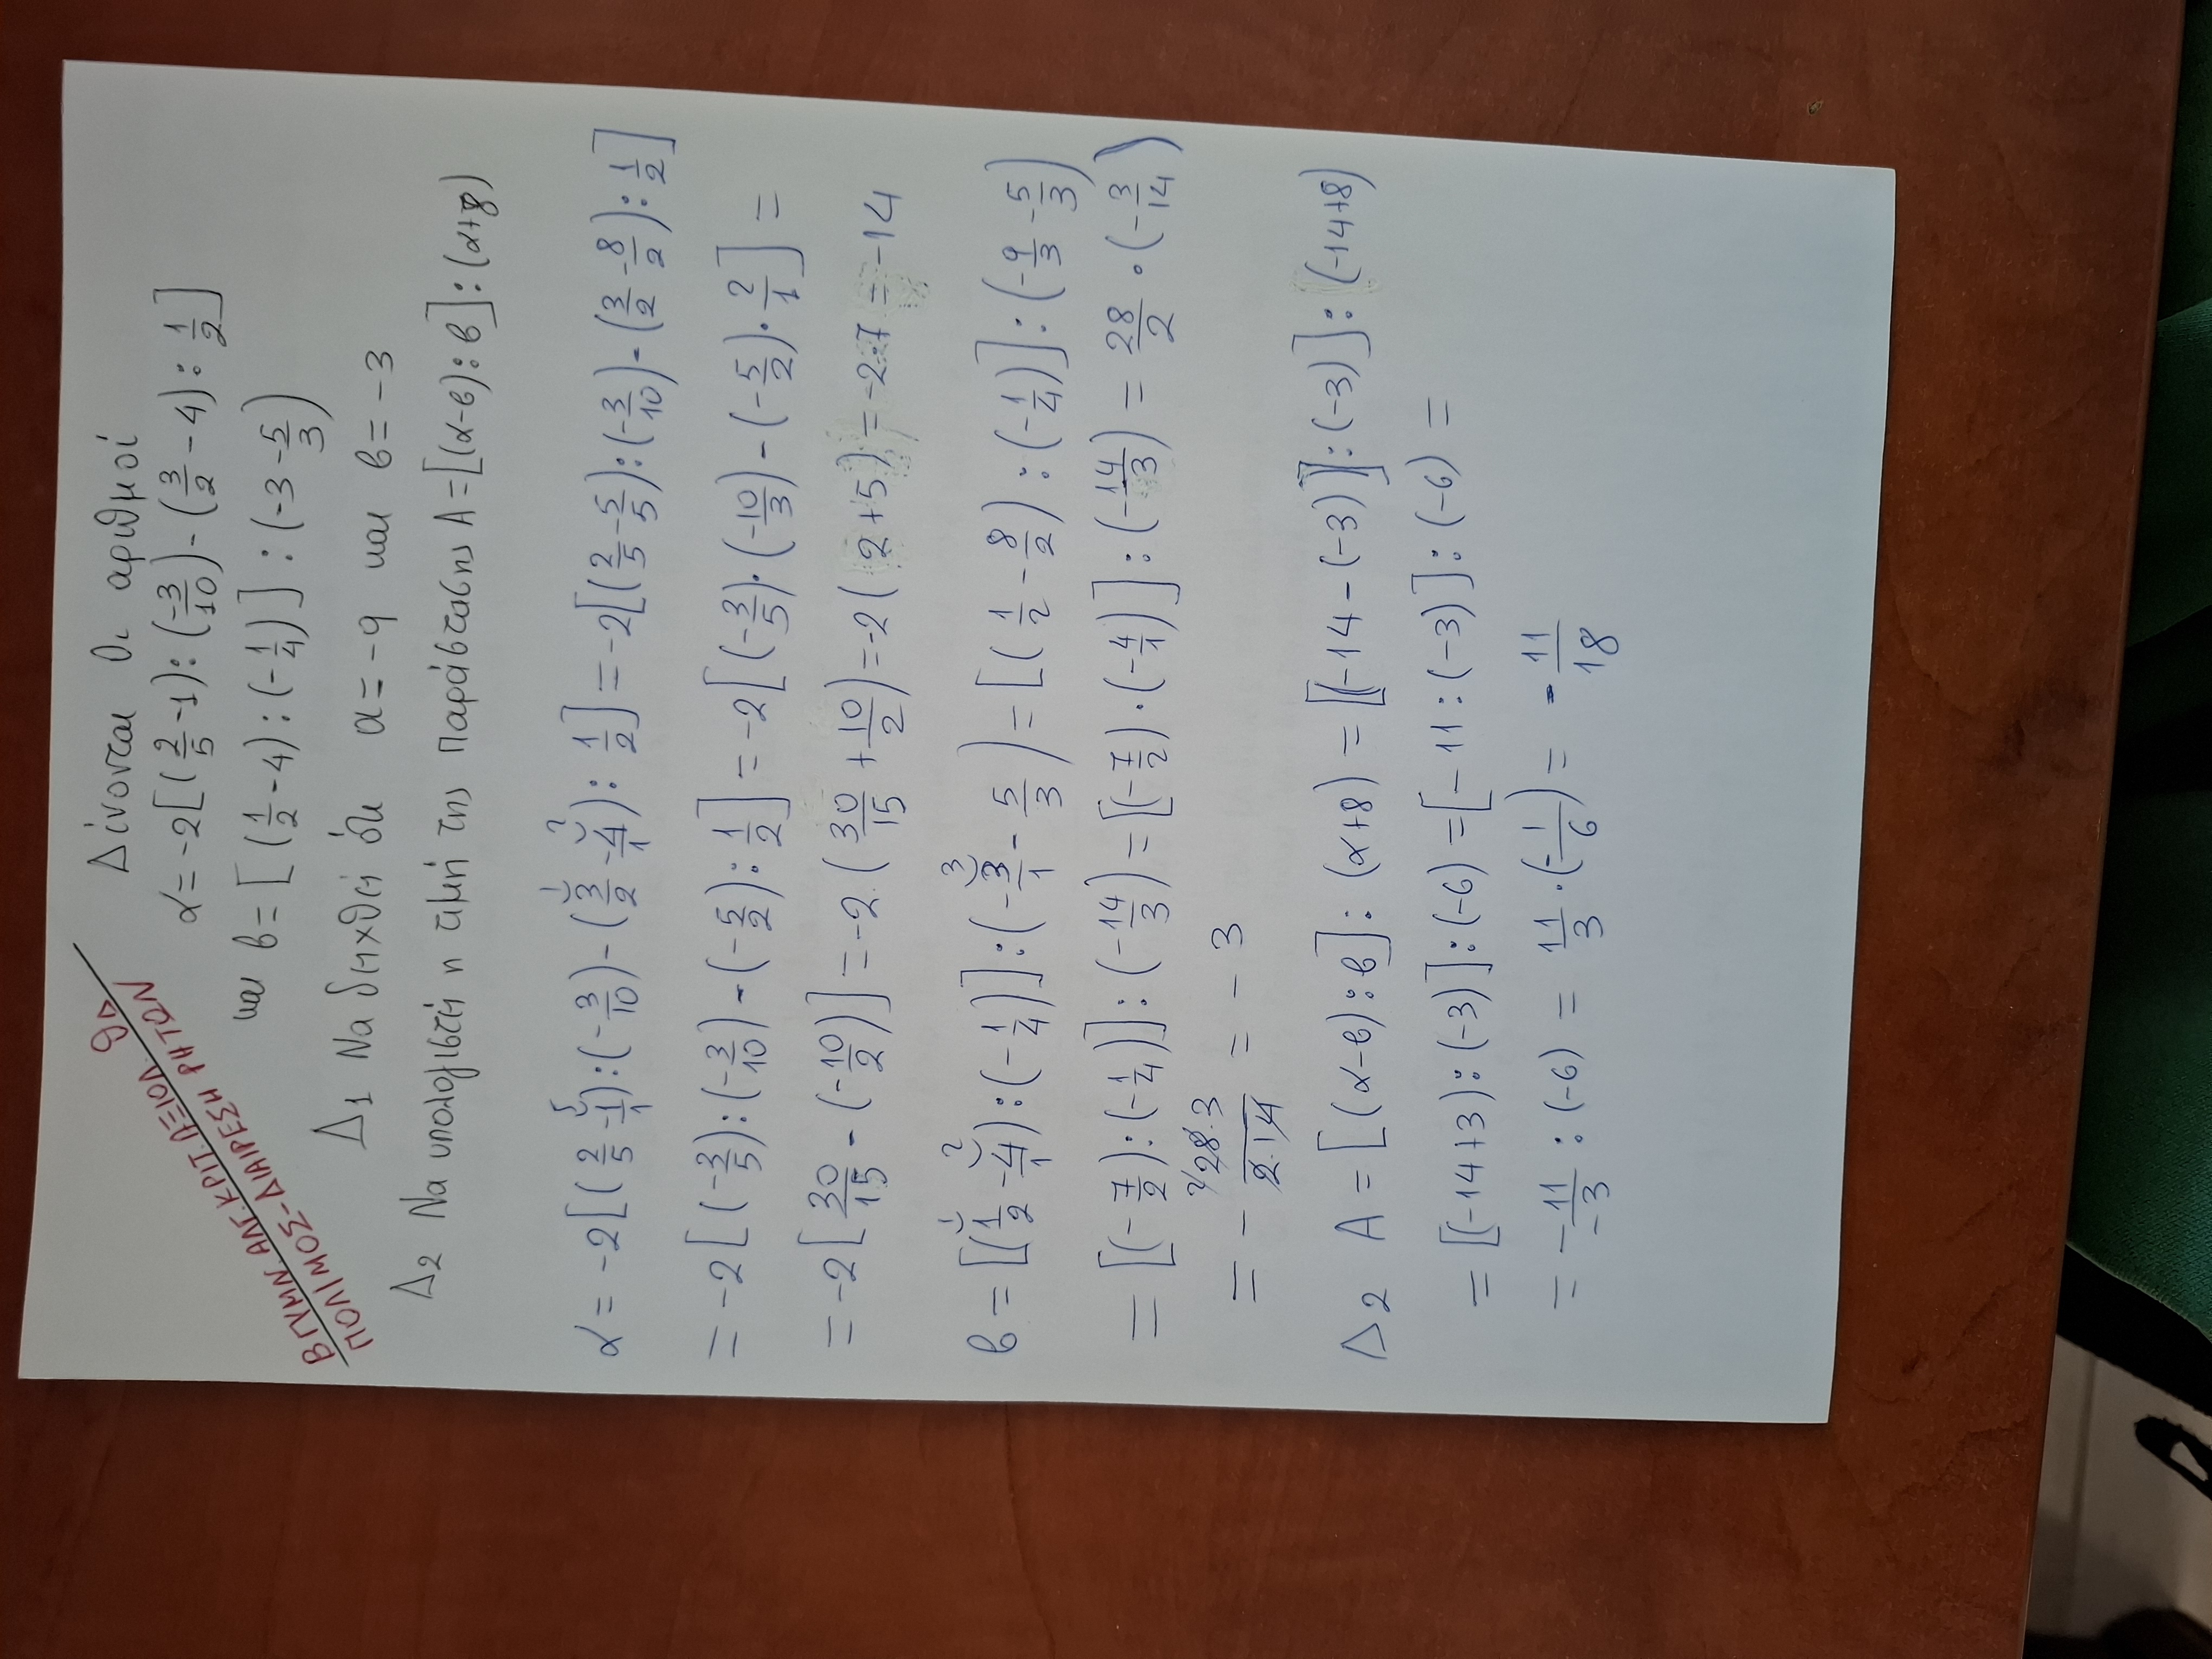 Β ΓΥΜΝ. ΑΝΕ. ΚΡΙΤ. ΑΞΙΟΛ. 9Δ
ΠΟΛ/ΜΟΣ-ΔΙΑΙΡΕΣΗ ΡΗΤΩΝ
Δίνονται οι αριθμοί
α = -2[(2/5 - 1) : (-3/10) - (3/2 - 4) : 1/2]
και β = [(1/2 - 4) : (-1/4)] : (-3 - 5/3)
Δ1 Να δειχθεί ότι α = -9 και β = -3
Δ2 Να υπολογιστεί η τιμή της παράστασης Α = [(α-β) : β] : (α+8)
α = -2[(2/5 - 1/1) : (-3/10) - (3/2 - 4/1) : 1/2] = -2[(2/5 - 5/5) : (-3/10) - (3/2 - 8/2) : 1/2]
= -2[(-3/5) : (-3/10) - (-5/2) : 1/2] = -2[(-3/5)·(-10/3) - (-5/2)·2/1] =
= -2[30/15 - (-10/2)] = -2·(30/15 + 10/2) = -2(2+5) = -2·7 = -14
β = [(1/2 - 4/1) : (-1/4)] : (-3/1 - 5/3) = [(1/2 - 8/2) : (-1/4)] : (-9/3 - 5/3)
= [(-7/2) : (-1/4)] : (-14/3) = [(-7/2)·(-4/1)] : (-14/3) = 28/2 · (-3/14)
= - 28·3/2·14 = -3
Δ2 Α = [(α-β) : β] : (α+8) = [(-14-(-3)] : (-3)] : (-14+8)
= [(-14+3) : (-3)] : (-6) = [-11 : (-3)] : (-6) =
= -11/-3 : (-6) = 11/3 · (-1/6) = -11/18